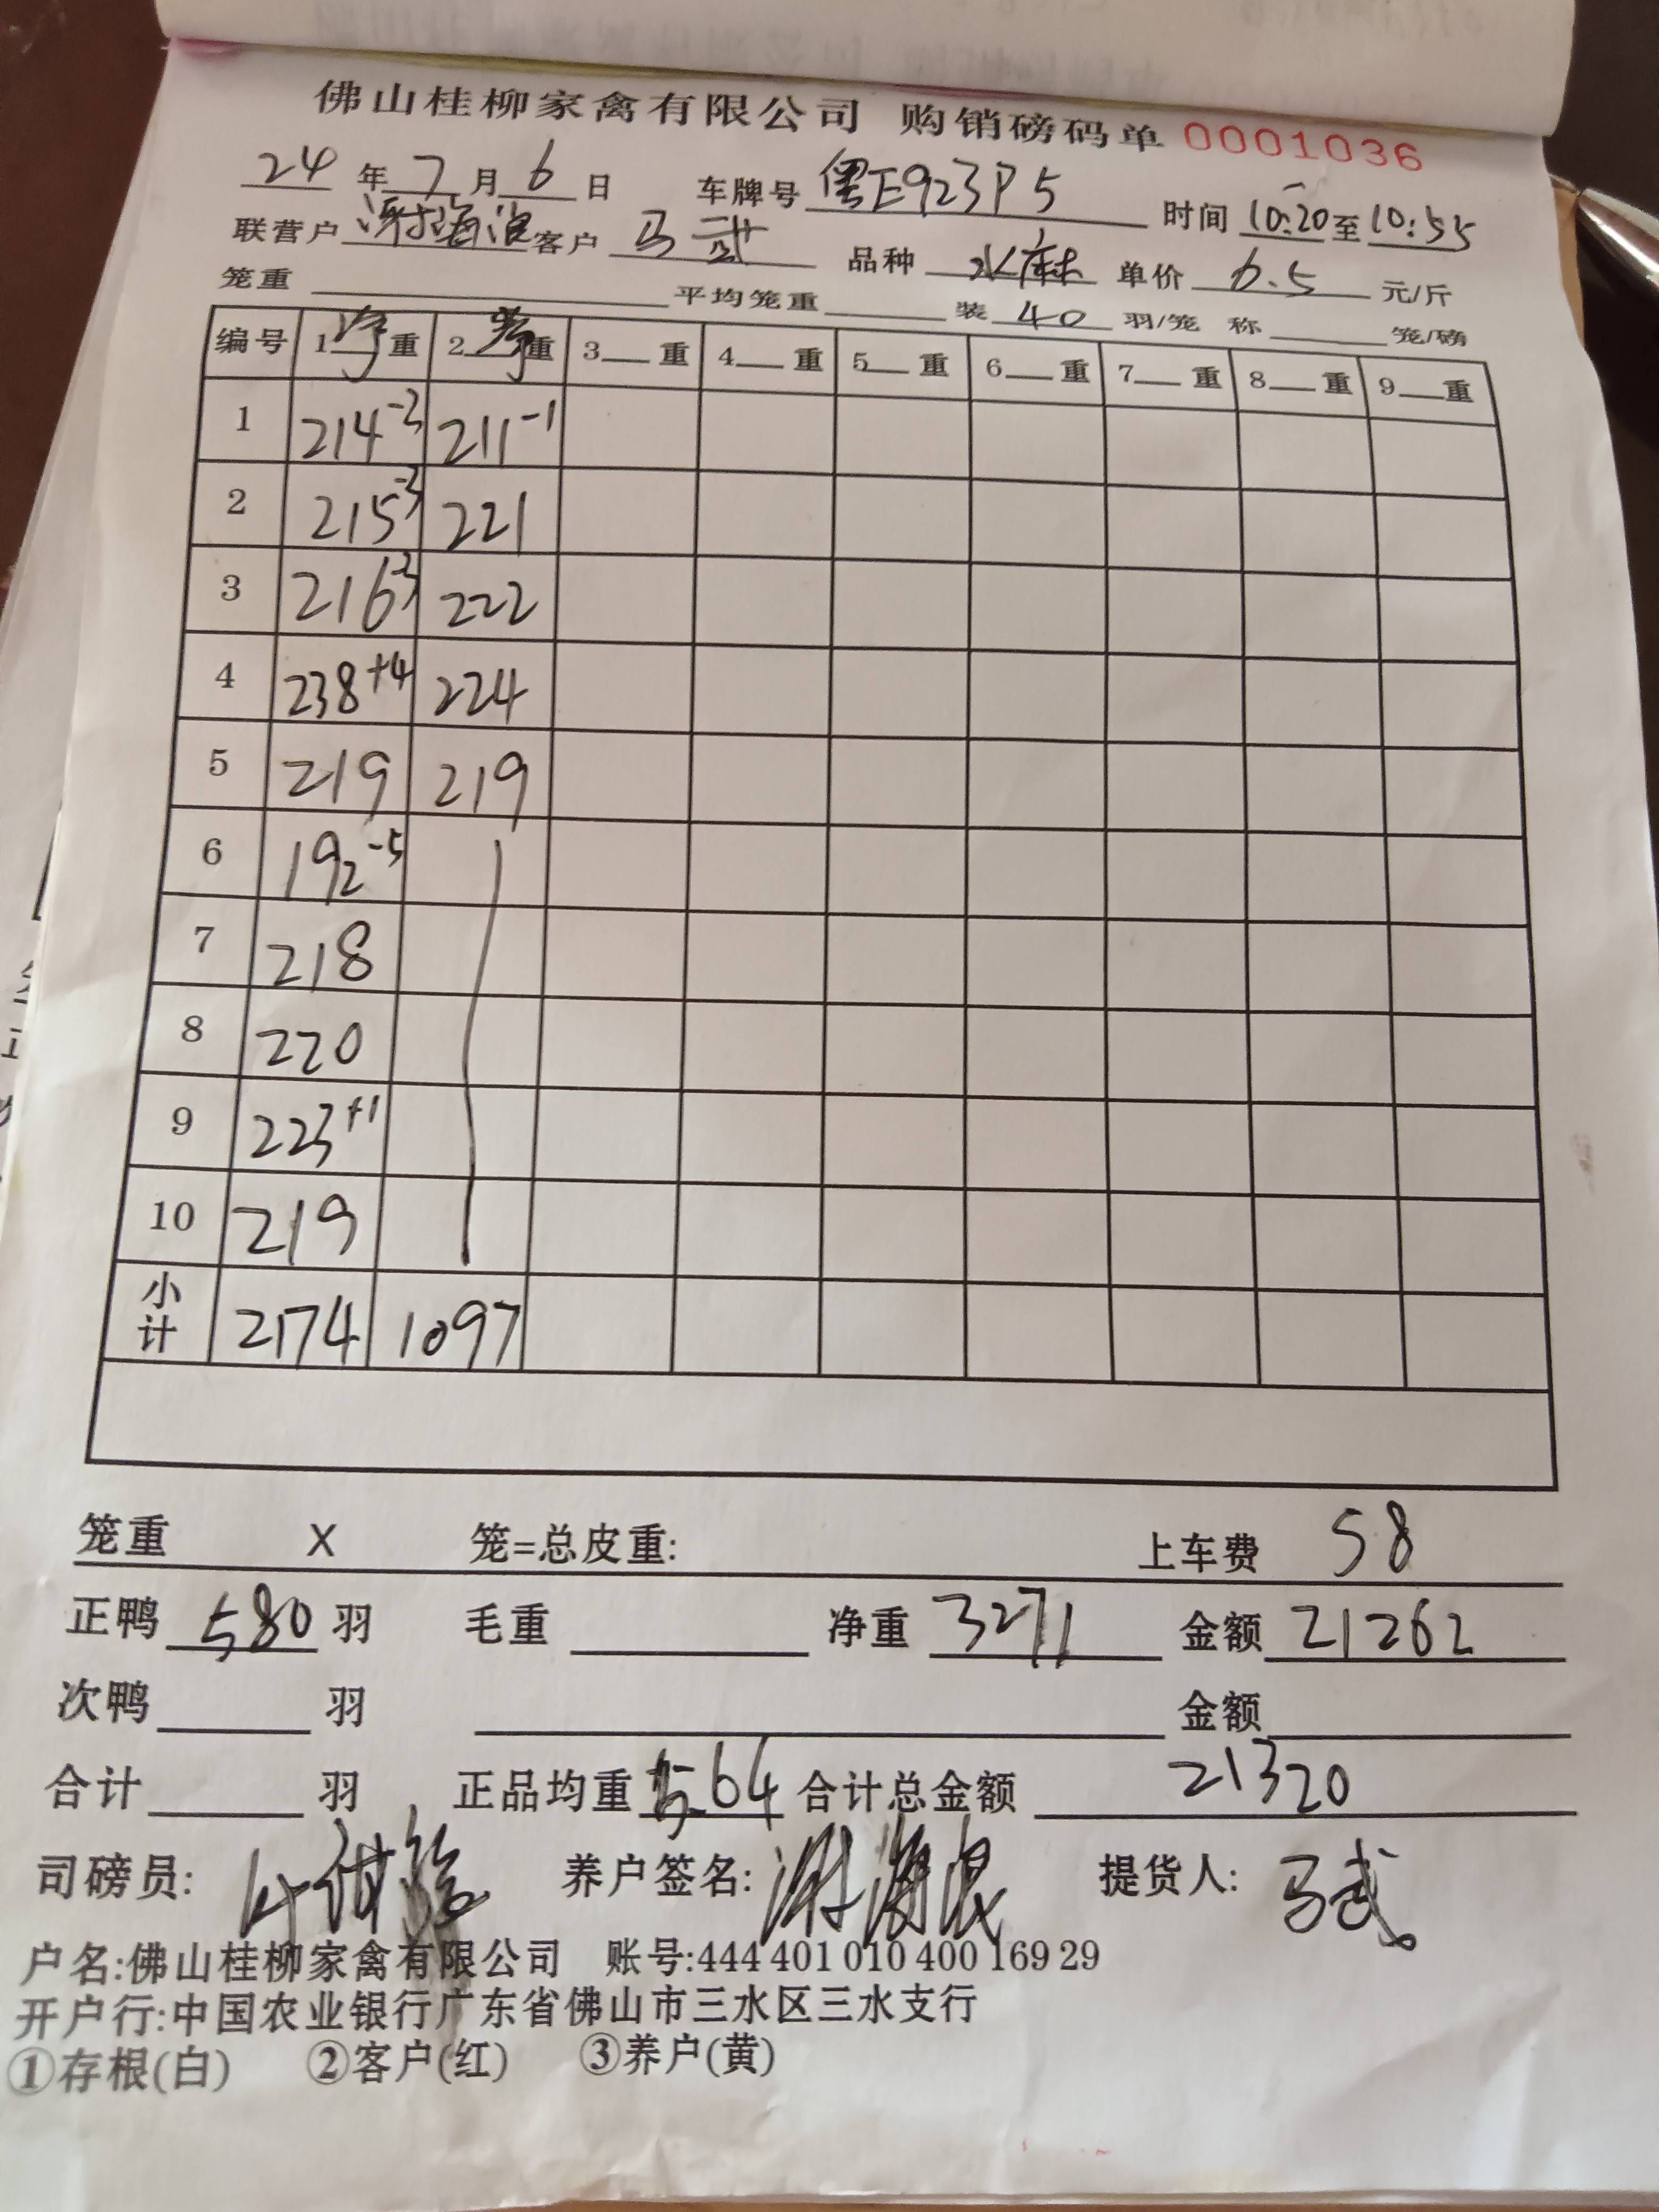 佛山桂柳家禽有限公司 购销磅码单 0001036
24 年 7 月 6 日 车牌号 粤E923P5 时间 10:20 至 10:55
联营户 谢海浪 客户 马武 品种 水麻 单价 6.5 元/斤
笼重 平均笼重 装 40 羽/笼 称 笼/磅
编号 1 净 重 2 净 重 3 重 4 重 5 重 6 重 7 重 8 重 9 重
1 214-3 211-1
2 215-3 221
3 216-3 222
4 238+4 224
5 219 219
6 192-5
7 218
8 220
9 223+1
10 219
小计 2174 1097
笼重 X 笼=总皮重: 上车费 58
正鸭 580 羽 毛重 净重 3271 金额 21262
次鸭 羽 金额
合计 羽 正品均重 5.64 合计总金额 21320
司磅员: 养户签名: 谢海浪 提货人: 马武
户名:佛山桂柳家禽有限公司 账号:444 401 010 400 169 29
开户行:中国农业银行广东省佛山市三水区三水支行
①存根(白) ②客户(红) ③养户(黄)